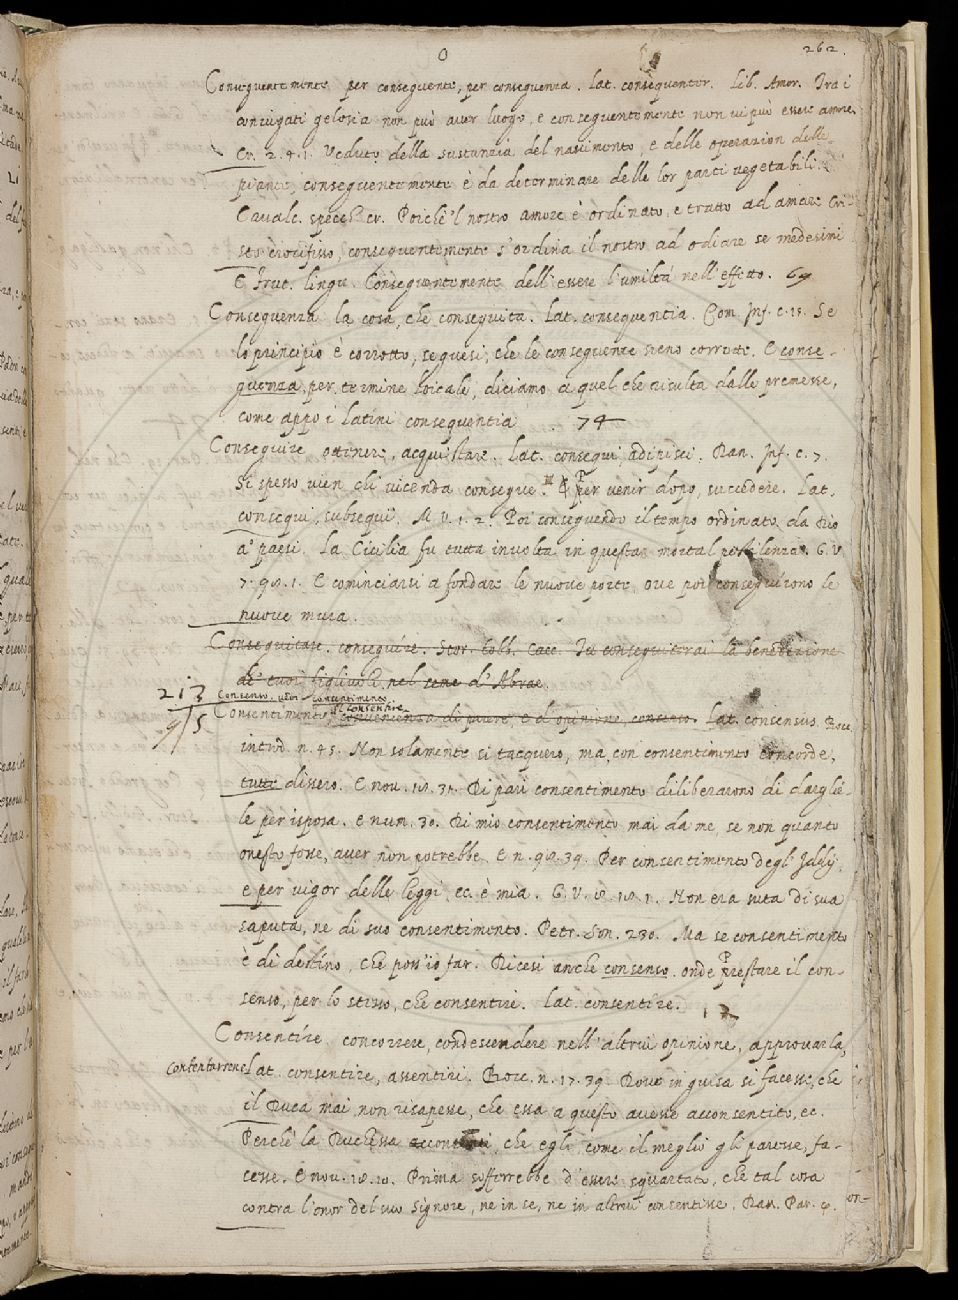 O 262.
Conseguentemente per conseguente, per conseguenza. Lat. consequenter. Lib. Amor. Tra i
coniugati gelosia non può aver luogo, e conseguentemente non vi può essere amore.
Cr. 2. 4. 1. Veduto della sustanzia del nascimento, e delle operazion delle
piante, conseguentemente è da determinare delle lor parti vegetabili.
Cavalc. specch. cr. Poichè 'l nostro amore è ordinato, e tratto ad amare Cri
sto crocifisso, conseguentemente s'ordina il nostro ad odiare se medesimi
E frut. lingu. Conseguentemente dell'essere l'umiltà nell'effetto. 69
Conseguenza la cosa, che conseguita. Lat. consequentia. Com. Inf. c. 15. Se
lo principio è corrotto, seguesi, che le conseguenze sieno corrotte. E conse-
guenza, per termine loicale, diciamo a quel che risulta dalle premesse,
come appo i latini consequentia. 74
Conseguire ottenere, acquistare. Lat. consequi, adipisci. Dan. Inf. c. 7.
Sì spesso vien chi vicenda consegue. ¶ Per venir dopo, succedere. Lat.
consequi, subsequi. M. V. 1. 2. Poi conseguendo il tempo ordinato da Dio
a' paesi. La Cicilia fu tutta involta in questa mortal pestilenza. G. V.
7. 98. 1. E cominciarsi a fondare le nuove porte, ove poi conseguirono le
nuove mura.
Conseguitare. conseguire. Stor. Coll. Tu conseguiterai la benedizione
de' tuoi figliuoli, nel seme d'Abrae.
213 Consenso, vedi consentimento.
9/5 Il consentire
Consentimento convenienza di parere e d'opinione, consenso. Lat. consensus. Bocc.
introd. n. 45. Non solamente si tacquero, ma, con consentimento concorde,
tutte dissero. E nov. 18. 31. Di pari consentimento diliberarono di dargliè-
le per isposa. E num. 30. Di mio consentimento mai da me, se non quanto
onesto fosse, aver non potrebbe. E n. 98. 39. Per consentimento degl' Iddij,
e per vigor delle leggi, ec. è mia. G. V. 8. 18. 1. Non era suta di sua
saputa, ne di suo consentimento. Petr. Son. 230. Ma se consentimento
è di destino, che poss'io far. Dicesi anche consenso. onde prestare il con-
senso, per lo stesso, che consentire. Lat. consentire. 12
Consentire concorrere, condescendere nell'altrui opinione, approvarla,
Contentarsene Lat. consentire, assentiri. Bocc. n. 17. 39. Dove in guisa si facesse, che
il Duca mai non risapesse, che essa a questo avesse acconsentito, ec.
Perchè la Duchessa che egli, come il meglio gli paresse, fa-
cesse. E nov. 18. 10. Prima sofferrebbe d'essere squartato, che tal cosa
contra l'onor del suo Signore, ne in se, ne in altrui consentisse. Dan. Par. 9.